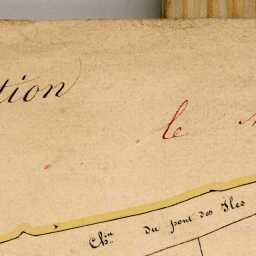 tion
le
Ch.in du pont des Iles